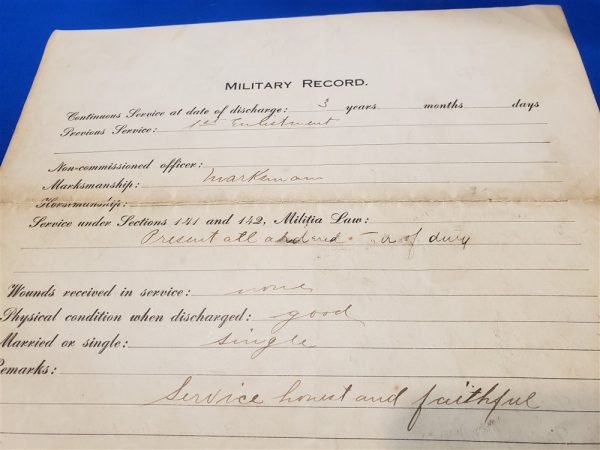 MILITARY RECORD.
Continuous Service at date of discharge: 3 years months days
Previous Service: 1st Enlistment
Non-commissioned officer:
Marksmanship: Marksman
Horsemanship:
Service under Sections 141 and 142, Militia Law:
Present all of duty
Wounds received in service: none
Physical condition when discharged: good
Married or single: single
Remarks:
Service honest and faithful